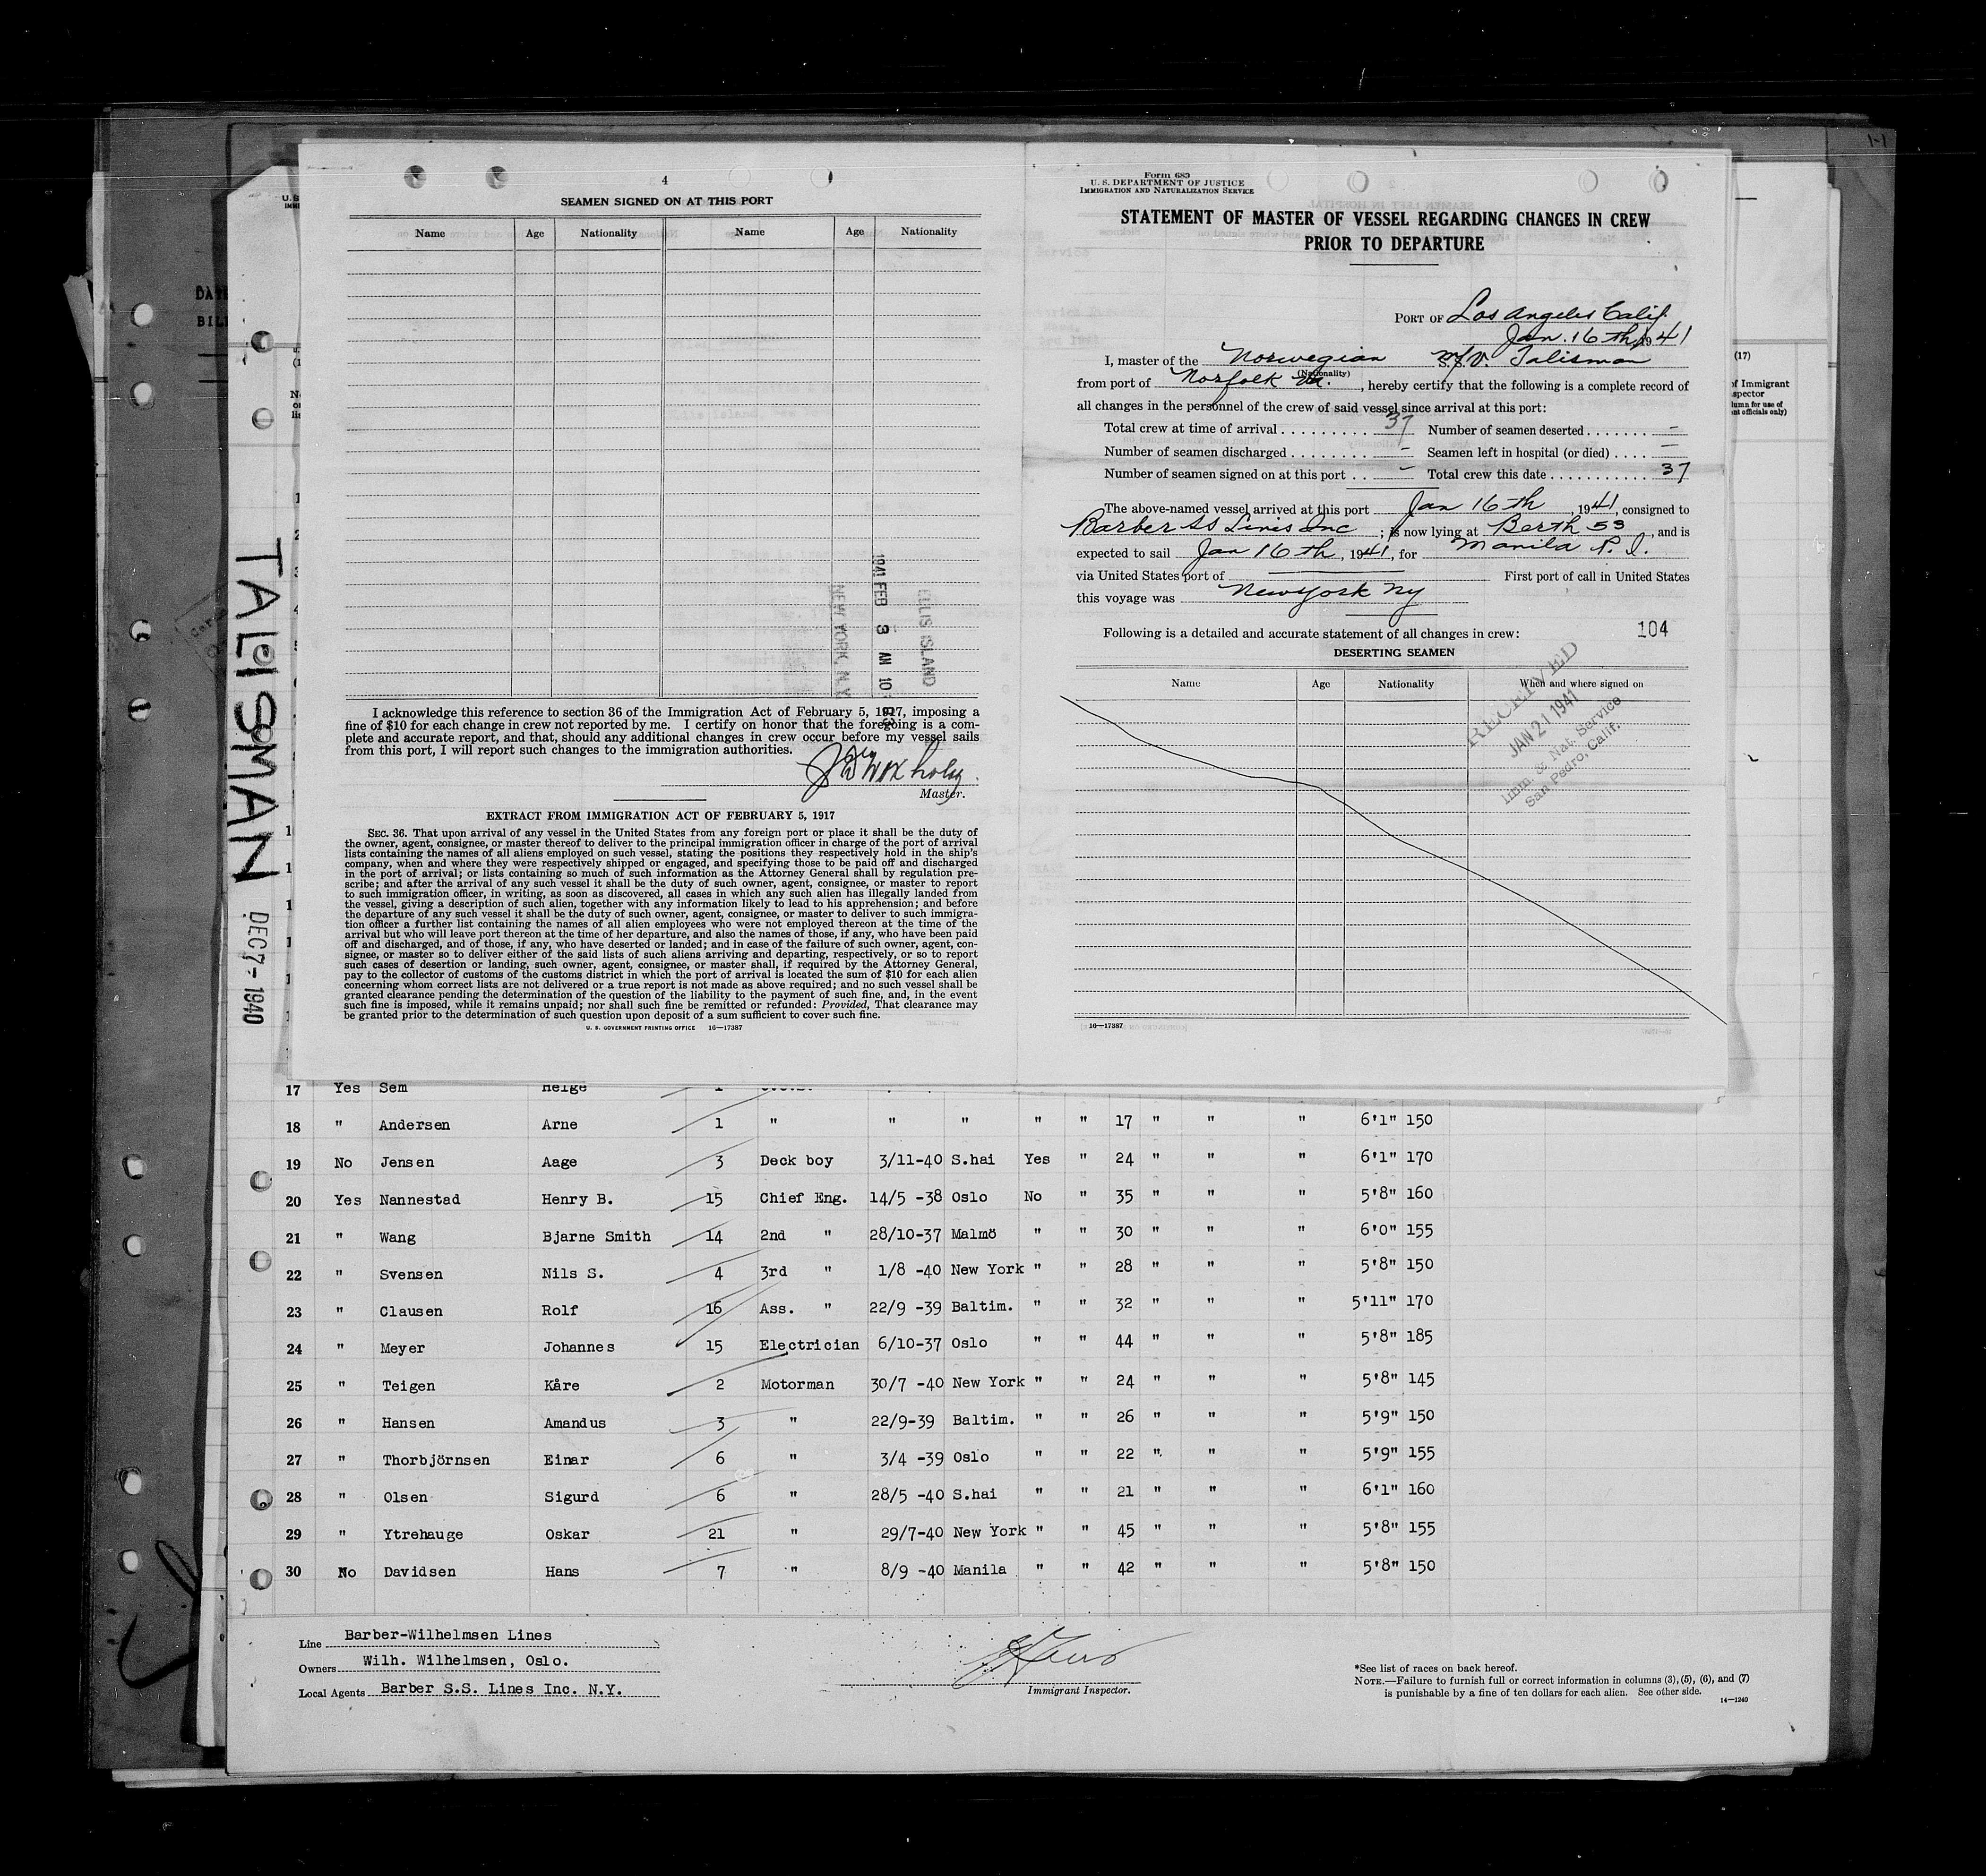 4
SEAMEN SIGNED ON AT THIS PORT
Name Age Nationality Name Age Nationality
ELLIS ISLAND
1941 FEB 3 AM 10
NEW YORK, N.Y.
I acknowledge this reference to section 36 of the Immigration Act of February 5, 1917, imposing a
fine of $10 for each change in crew not reported by me. I certify on honor that the foregoing is a com-
plete and accurate report, and that, should any additional changes in crew occur before my vessel sails
from this port, I will report such changes to the immigration authorities.
Master.
EXTRACT FROM IMMIGRATION ACT OF FEBRUARY 5, 1917
SEC. 36. That upon arrival of any vessel in the United States from any foreign port or place it shall be the duty of
the owner, agent, consignee, or master thereof to deliver to the principal immigration officer in charge of the port of arrival
lists containing the names of all aliens employed on such vessel, stating the positions they respectively hold in the ship's
company, when and where they were respectively shipped or engaged, and specifying those to be paid off and discharged
in the port of arrival; or lists containing so much of such information as the Attorney General shall by regulation pre-
scribe; and after the arrival of any such vessel it shall be the duty of such owner, agent, consignee, or master to report
to such immigration officer, in writing, as soon as discovered, all cases in which any such alien has illegally landed from
the vessel, giving a description of such alien, together with any information likely to lead to his apprehension; and before
the departure of any such vessel it shall be the duty of such owner, agent, consignee, or master to deliver to such immigra-
tion officer a further list containing the names of all alien employees who were not employed thereon at the time of the
arrival but who will leave port thereon at the time of her departure, and also the names of those, if any, who have been paid
off and discharged, and of those, if any, who have deserted or landed; and in case of the failure of such owner, agent, con-
signee, or master so to deliver either of the said lists of such aliens arriving and departing, respectively, or so to report
such cases of desertion or landing, such owner, agent, consignee, or master shall, if required by the Attorney General,
pay to the collector of customs of the customs district in which the port of arrival is located the sum of $10 for each alien
concerning whom correct lists are not delivered or a true report is not made as above required; and no such vessel shall be
granted clearance pending the determination of the question of the liability to the payment of such fine, and, in the event
such fine is imposed, while it remains unpaid; nor shall such fine be remitted or refunded: Provided, That clearance may
be granted prior to the determination of such question upon deposit of a sum sufficient to cover such fine.
U. S. GOVERNMENT PRINTING OFFICE 16—17387
Form 689
U. S. DEPARTMENT OF JUSTICE
IMMIGRATION AND NATURALIZATION SERVICE
STATEMENT OF MASTER OF VESSEL REGARDING CHANGES IN CREW
PRIOR TO DEPARTURE
PORT OF Los Angeles Calif.
Jan. 16 th, 1941
I, master of the Norwegian S. S. M/V. Talisman
(Nationality)
from port of Norfolk Va., hereby certify that the following is a complete record of
all changes in the personnel of the crew of said vessel since arrival at this port:
Total crew at time of arrival . . . . . . . . . . 37 Number of seamen deserted . . . . . . . —
Number of seamen discharged . . . . . . . . . — Seamen left in hospital (or died) . . . . —
Number of seamen signed on at this port . . — Total crew this date . . . . . . . . . . . 37
The above-named vessel arrived at this port Jan 16 th, 1941, consigned to
Barber SS Lines Inc ; is now lying at Berth 53, and is
expected to sail Jan 16 th, 1941, for Manila P. I.
via United States port of ———— First port of call in United States
this voyage was New York Ny
Following is a detailed and accurate statement of all changes in crew: 104
DESERTING SEAMEN
Name Age Nationality When and where signed on
RECEIVED
JAN 21 1941
Imm. & Nat. Service
San Pedro, Calif.
16—17387
TALISMAN DEC 7-1940
(17)
of Immigrant
17 Yes Sem Helge 1
18 " Andersen Arne 1 " " " " " 17 " " " 6'1" 150
19 No Jensen Aage 3 Deck boy 3/11-40 S.hai Yes " 24 " " " 6'1" 170
20 Yes Nannestad Henry B. 15 Chief Eng. 14/5 -38 Oslo No " 35 " " " 5'8" 160
21 " Wang Bjarne Smith 14 2nd " 28/10-37 Malmö " " 30 " " " 6'0" 155
22 " Svensen Nils S. 4 3rd " 1/8 -40 New York " " 28 " " " 5'8" 150
23 " Clausen Rolf 16 Ass. " 22/9 -39 Baltim. " " 32 " " " 5'11" 170
24 " Meyer Johannes 15 Electrician 6/10-37 Oslo " " 44 " " " 5'8" 185
25 " Teigen Kåre 2 Motorman 30/7 -40 New York " " 24 " " " 5'8" 145
26 " Hansen Amandus 3 " 22/9-39 Baltim. " " 26 " " " 5'9" 150
27 " Thorbjörnsen Einar 6 " 3/4 -39 Oslo " " 22 " " " 5'9" 155
28 " Olsen Sigurd 6 " 28/5 -40 S.hai " " 21 " " " 6'1" 160
29 " Ytrehauge Oskar 21 " 29/7-40 New York " " 45 " " " 5'8" 155
30 No Davidsen Hans 7 " 8/9 -40 Manila " " 42 " " " 5'8" 150
Line Barber-Wilhelmsen Lines
Owners Wilh. Wilhelmsen, Oslo.
Local Agents Barber S.S. Lines Inc. N.Y.
Immigrant Inspector.
*See list of races on back hereof.
NOTE.—Failure to furnish full or correct information in columns (3), (5), (6), and (7)
is punishable by a fine of ten dollars for each alien. See other side.
14—1240